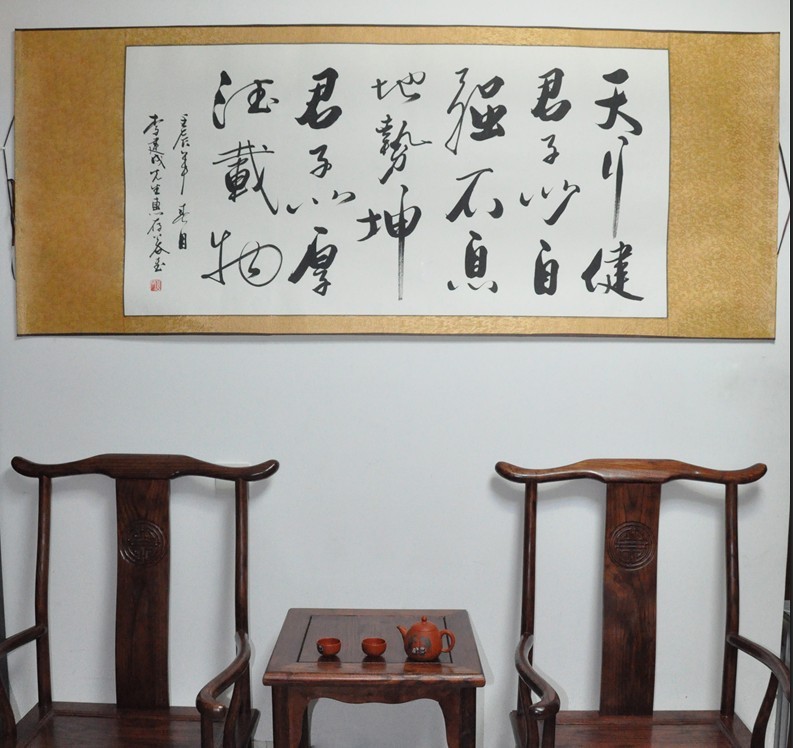 天行健
君子以自
强不息
地勢坤
君子以厚
德載物
壬辰年春月
李建成先生惠存